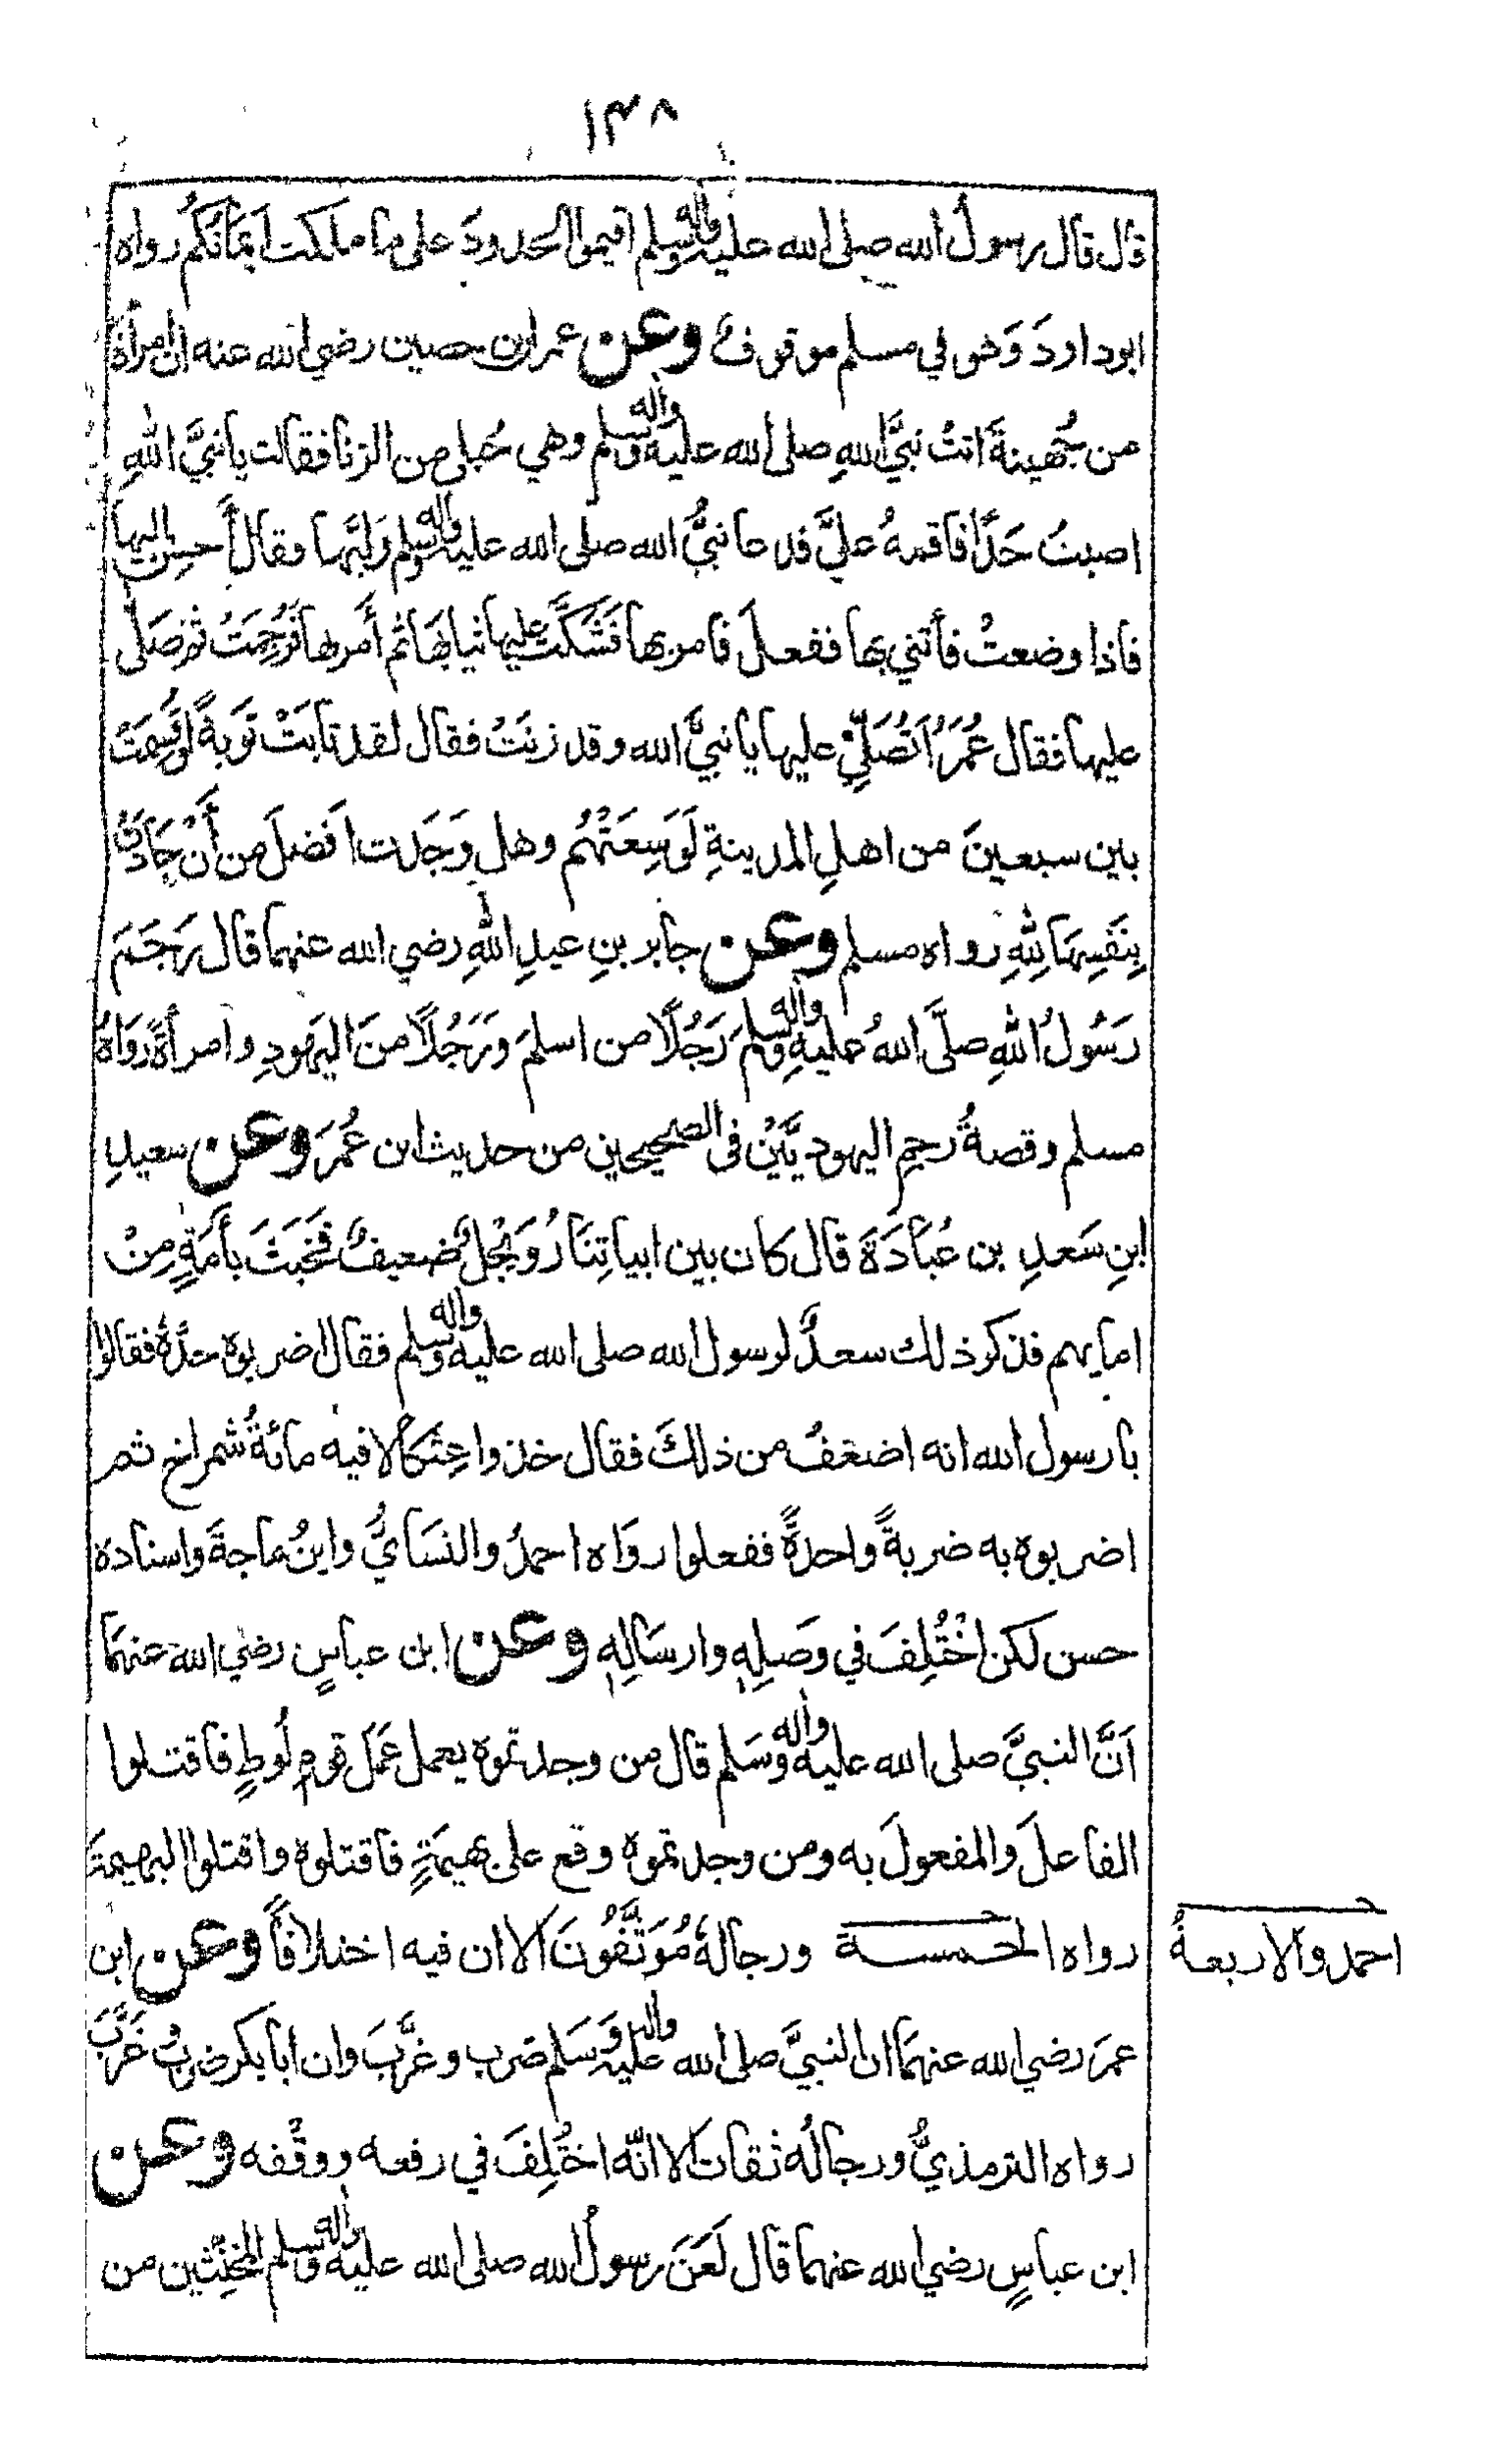 ١٣٨
قال قال رسول الله صلى الله عليه واله وسلم اقيموا الحدودَ على ما ملكت ايمَانُكُم رواه
ابوداودَ وَهو في مسلم موقوفٌ وعن عمران بن حصين رضي الله عنه ان امرأة
من جُهينةَ اتتْ نبيَّ اللهِ صلى الله عليه واله وسلم وهي حُبلى من الزنا فقالت يا نبيَّ اللهِ
اصبتُ حَدًّا فاقمهُ عليَّ فدعا نبيُّ الله صلى الله عليه واله وسلم وَليَّها فقال أَحسِن اليها
فاذا وضعتْ فأتني بها ففعلَ فامر بها فَشُكَّتْ عليها ثيابُها ثم أَمر بها فَرُجِمَتْ ثم صَلى
عليها فقال عُمَرُ اَتُصَلِّي عليها يا نبيَّ الله وقد زنَتْ فقال لقد تابَتْ تَوبةً لو قُسِمَتْ
بين سبعينَ من اهلِ المدينةِ لَوَسِعَتْهُم وهل وَجَدت افضلَ من أَنْ جَادَتْ
بِنَفسِهَا للهِ رواه مسلم وعن جابر بنِ عبدِ اللهِ رضي الله عنهما قال رَجَمَ
رَسُولُ اللهِ صلَّى اللهُ عليهِ واله وسلمَ رَجُلًا من اسلمَ وَرَجُلًا منَ اليهودِ وامرأةً رَوَاهُ
مسلم وقصةُ رجمِ اليهوديَّيْنِ فى الصحيحين من حديث ابن عُمَرَ وعن سعيدِ
ابنِ سَعدِ بن عُبَادَةَ قال كان بين ابياتِنَا رُوَيْجِلٌ ضعيفٌ فَخَبَثَ بأَمَةٍ مِنْ
امايهم فذكر ذلك سعدٌ لرسول الله صلى الله عليه واله وسلم فقال اضربوه حدَّهُ فقالوا
يا رسول الله انه اضعفُ من ذلكَ فقال خذوا عِثكالا فيه مائةُ شمراخ ثم
اضربوه به ضربةً واحدةً ففعلوا روَاه احمدُ والنسَايُّ وابنُ ماجةَ واسناده
حسن لكن اخْتُلِفَ في وَصَلِهِ وارسَالِهِ وعن ابن عباسٍ رضي الله عنهمَا
اَنَّ النبيَّ صلى الله عليه واله وسَلم قال من وجدتموه يعمل عَمَل قومِ لُوطٍ فاقتلوا
الفاعلَ والمفعولَ به ومن وجدتموه وقع على بهيمَةٍ فاقتلوه واقتلوا البهيمةَ
رواه الخمسة ورجالهُ مُوَثَّقُونَ الا ان فيه اختلافًا وعن ابن
احمد والاربعةُ
عمرَ رضي الله عنهمَا ان النبيَّ صلى الله عليه واله وسَلم ضرب وغرَّبَ وان ابا بكر ضرب وغَرَّبَ
رواه الترمذيُّ ورجالُه ثقات الا انَّه اختُلِفَ في رفعه ووقْفه وعن
ابن عباسٍ رضي الله عنهما قال لَعَنَ رسولُ الله صلى الله عليه واله وسلم المخنِّثين من